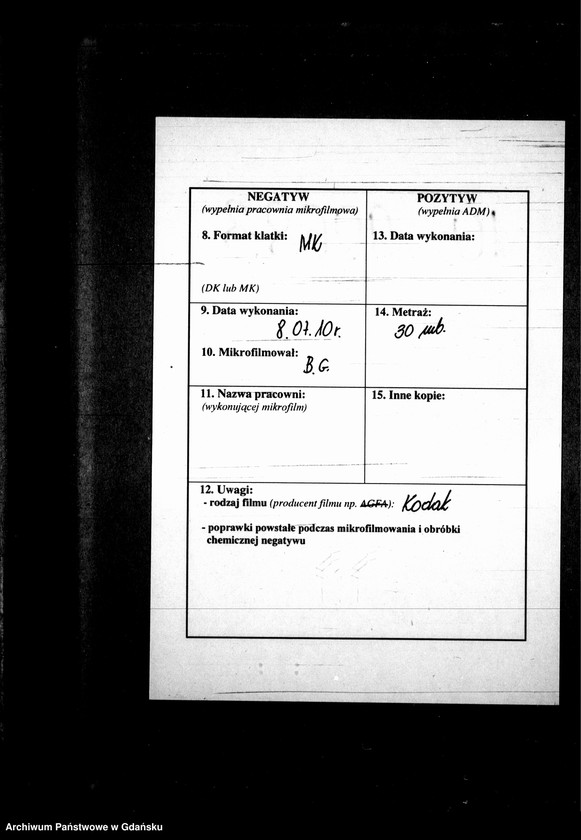 NEGATYW
(wypełnia pracownia mikrofilmowa)
8. Format klatki: MK
(DK lub MK)
9. Data wykonania:
8.07.10r.
10. Mikrofilmował:
B.G.
11. Nazwa pracowni:
(wykonującej mikrofilm)
POZYTYW
(wypełnia ADM)
13. Data wykonania:
14. Metraż:
30 mb.
15. Inne kopie:
12. Uwagi:
- rodzaj filmu (producent filmu np. AGFA): Kodak
- poprawki powstałe podczas mikrofilmowania i obróbki
chemicznej negatywu
Archiwum Państwowe w Gdańsku